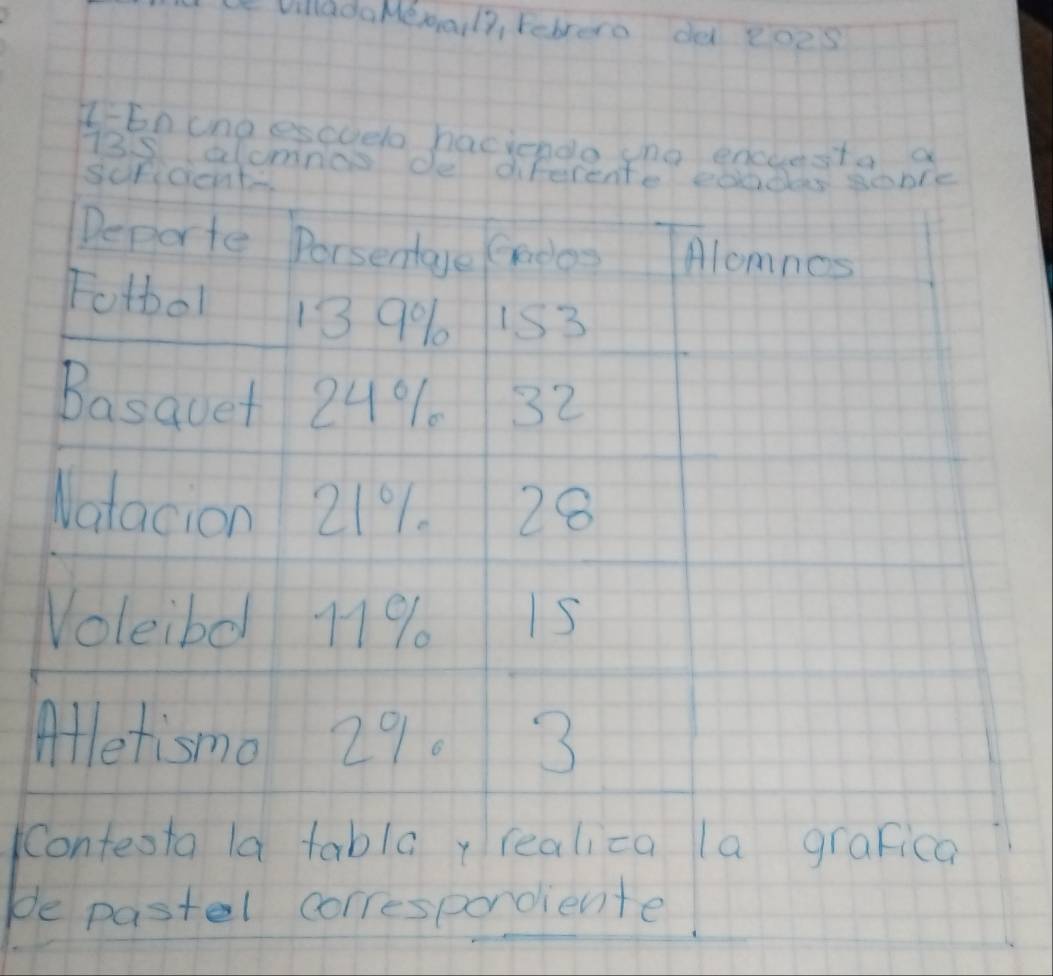 de VilladaMéxia,17, Febrero del 2025
1-En una escuela haciendo una encuesta a
135 alumnos de diferente edades sobre
Deporte Porsentaje Grados Alumnos
Futbol 139% 153
Basquet 24% 32
Natacion 21% 28
Voleibol 11% 15
Atletismo 2% 3
Contesta la tabla y realiza la grafica
de pastel correspondiente